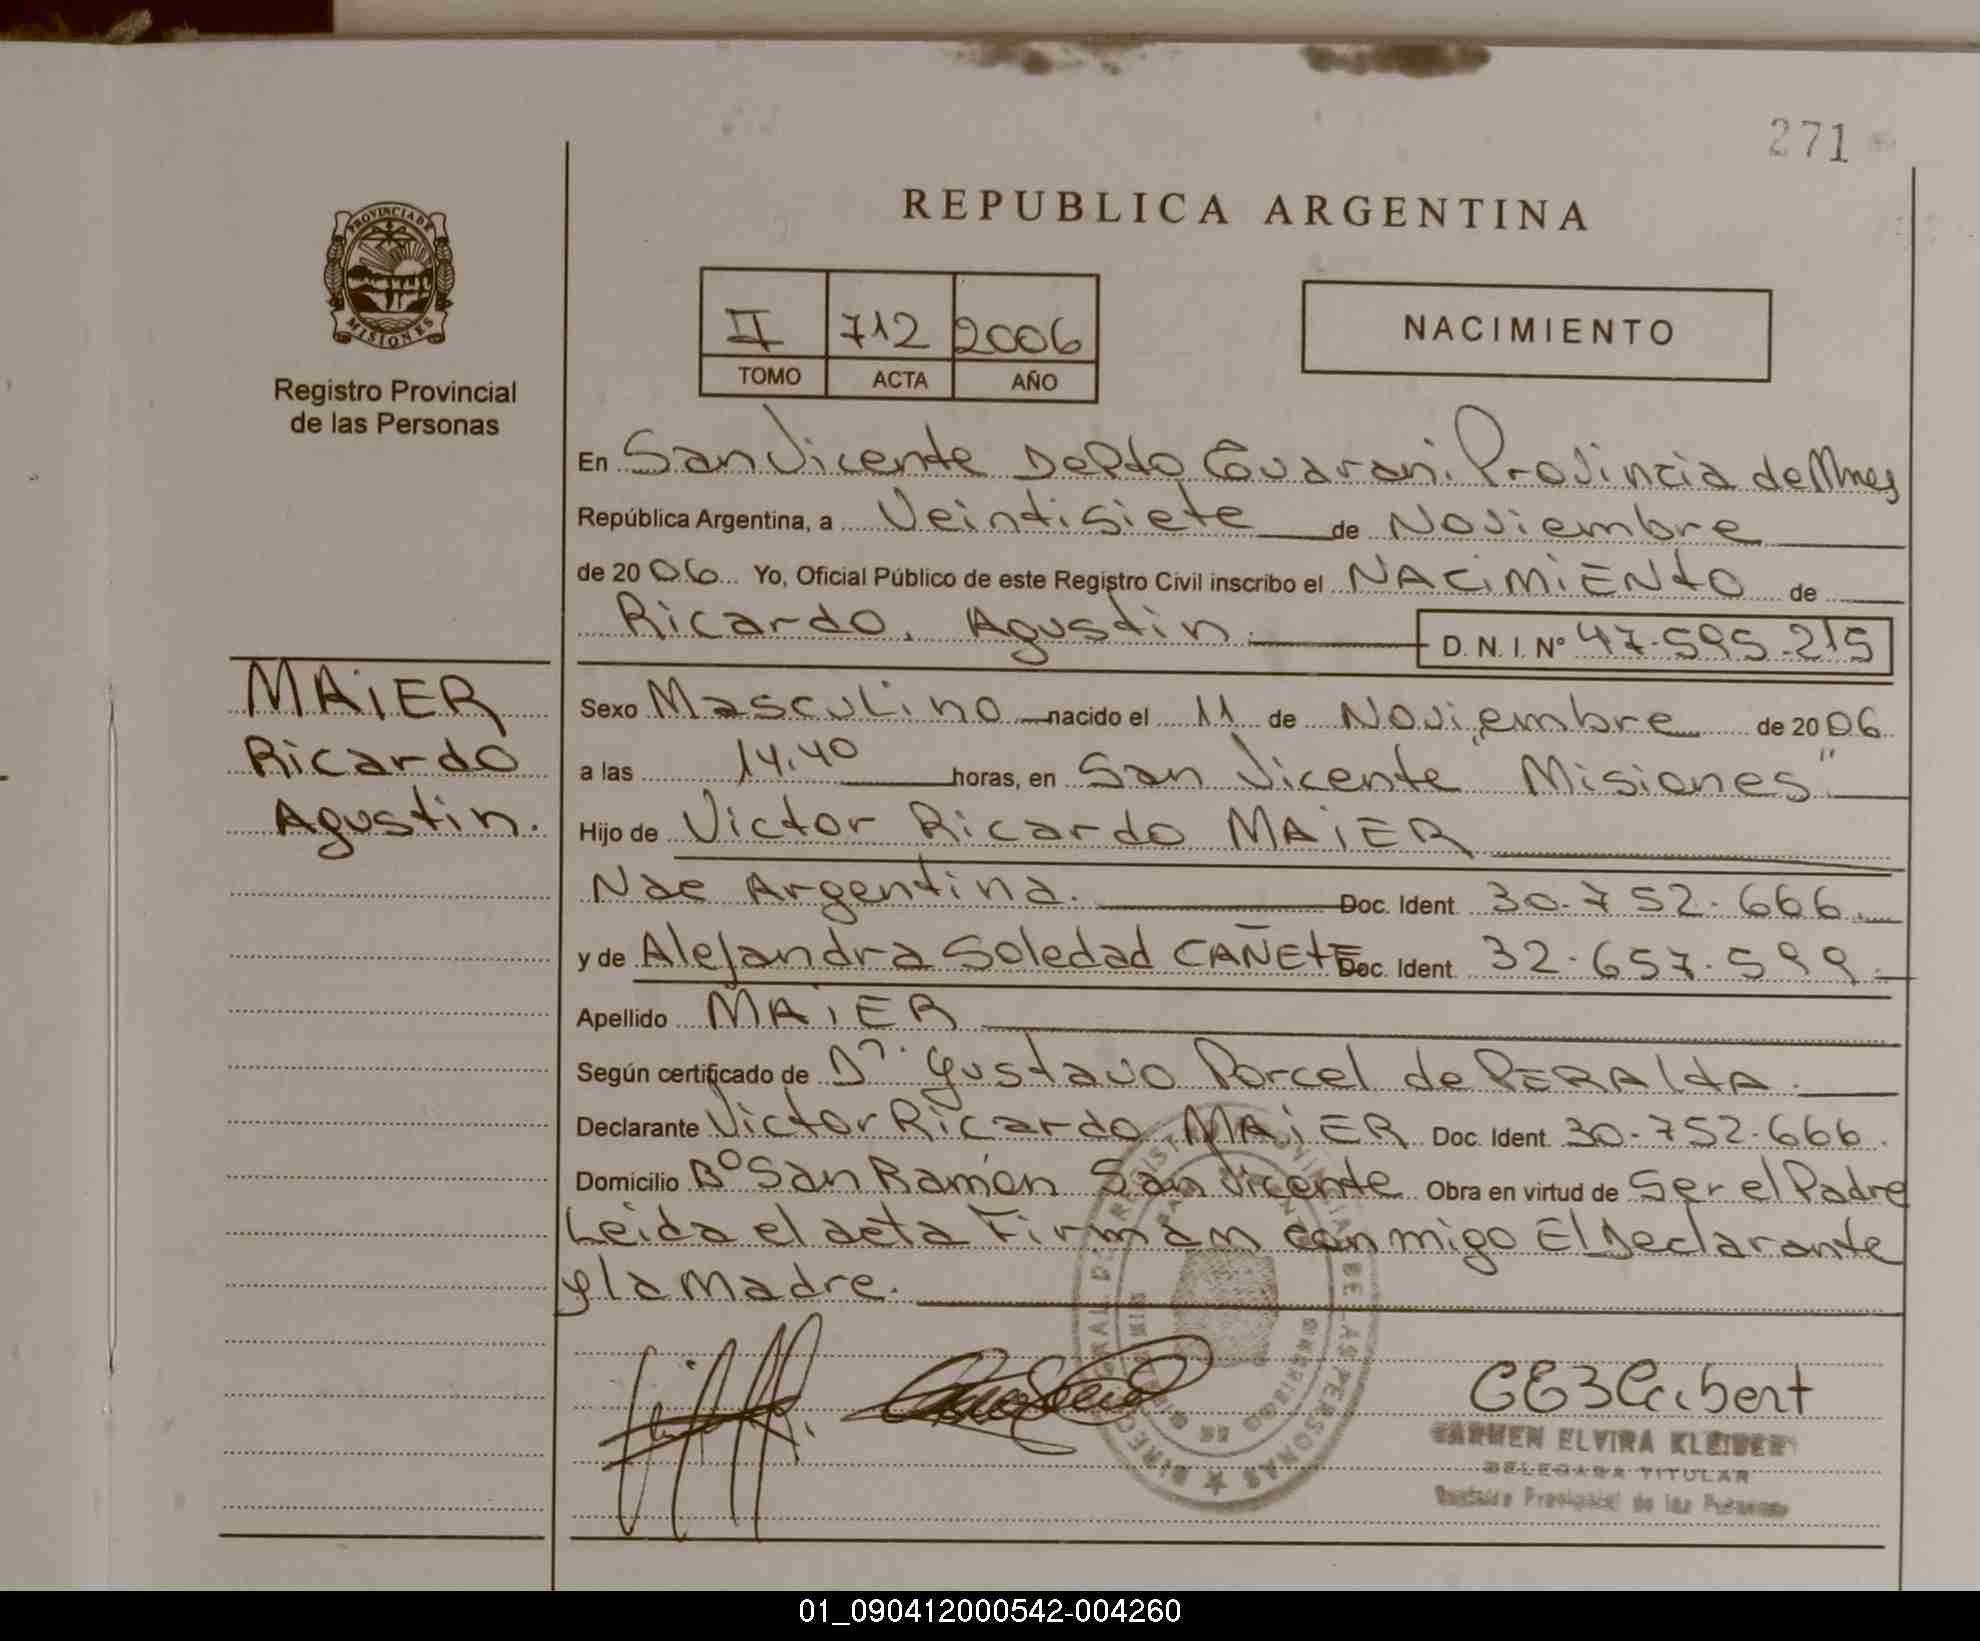 271
REPUBLICA ARGENTINA
PROVINCIA DE
MISIONES
Registro Provincial
de las Personas
II 712 2006
TOMO ACTA AÑO
NACIMIENTO
En San Vicente Depto Guarani. Provincia de Mnes
República Argentina, a Veintisiete de Noviembre
de 2006 Yo, Oficial Público de este Registro Civil inscribo el NACiMiENtO de
Ricardo, Agustin. D. N. I. Nº 47.595.215
MAiER
Ricardo
Agustin.
Sexo Masculino nacido el 11 de Noviembre de 2006
a las 14,40 horas, en San Vicente "Misiones"
Hijo de Victor Ricardo MAiER
Nac Argentina. Doc. Ident. 30.752.666.
y de Alejandra Soledad CAÑEtE Doc. Ident. 32.657.599.
Apellido MAiER
Según certificado de Dr. Gustavo Porcel de PERAltA.
Declarante Victor Ricardo MAiER Doc. Ident. 30.752.666.
Domicilio Bº San Ramón San Vicente Obra en virtud de Ser el Padre
Leida el acta Firman conmigo El Declarante
y la Madre.
CARMEN ELVIRA KLEIBER
DELEGADA TITULAR
Registro Provincial de las Personas
01_090412000542-004260